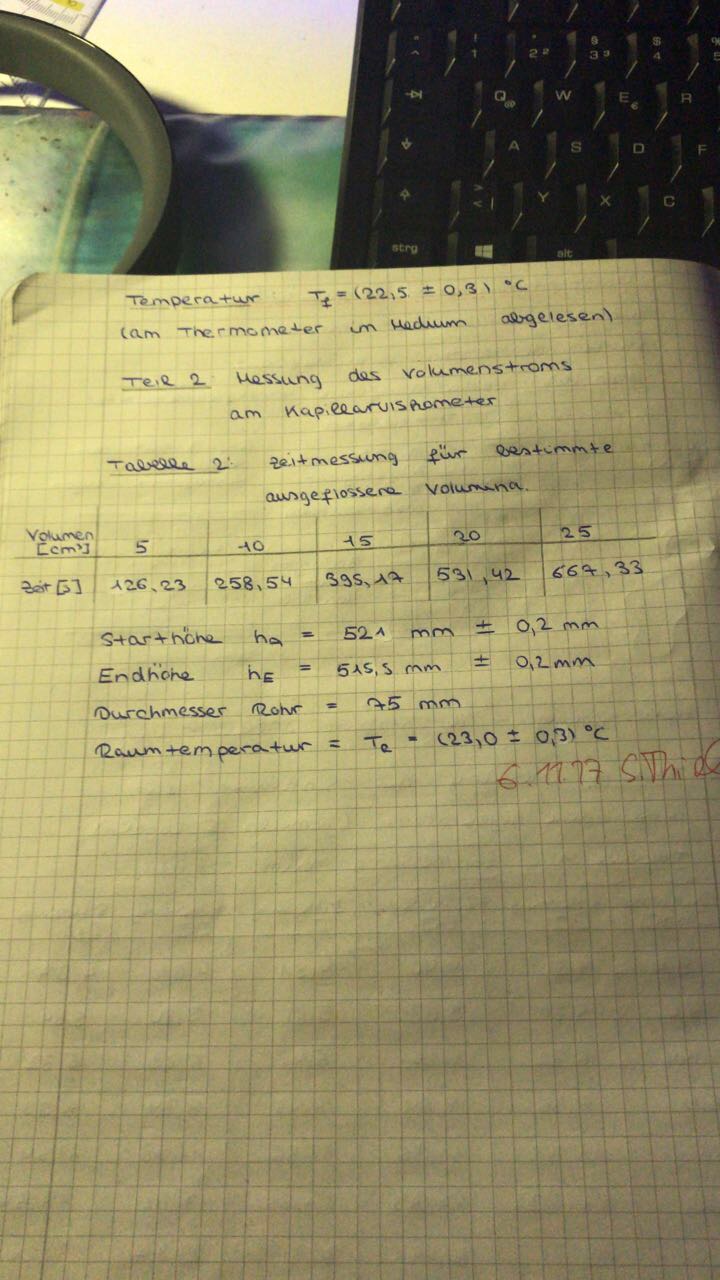 Temperatur: T₁ = (22,5 ± 0,3) °C
(am Thermometer im Medium abgelesen)
Teil 2 Messung des Volumenstroms
am Kapillarviskometer
Tabelle 2: Zeitmessung für bestimmte
ausgeflossene Volumina.
Volumen [cm³] 5 10 15 20 25
Zeit [s] 126,23 258,54 395,17 531,42 667,33
Starthöhe hₐ = 521 mm ± 0,2 mm
Endhöhe h_E = 515,5 mm ± 0,2 mm
Durchmesser Rohr = 75 mm
Raumtemperatur = T_R = (23,0 ± 0,3) °C
6.11.17
^ ! " § $ %
1 2 ² 3 ³ 4 5
Q @ W E € R
A S D F
> < | Y X C
strg alt